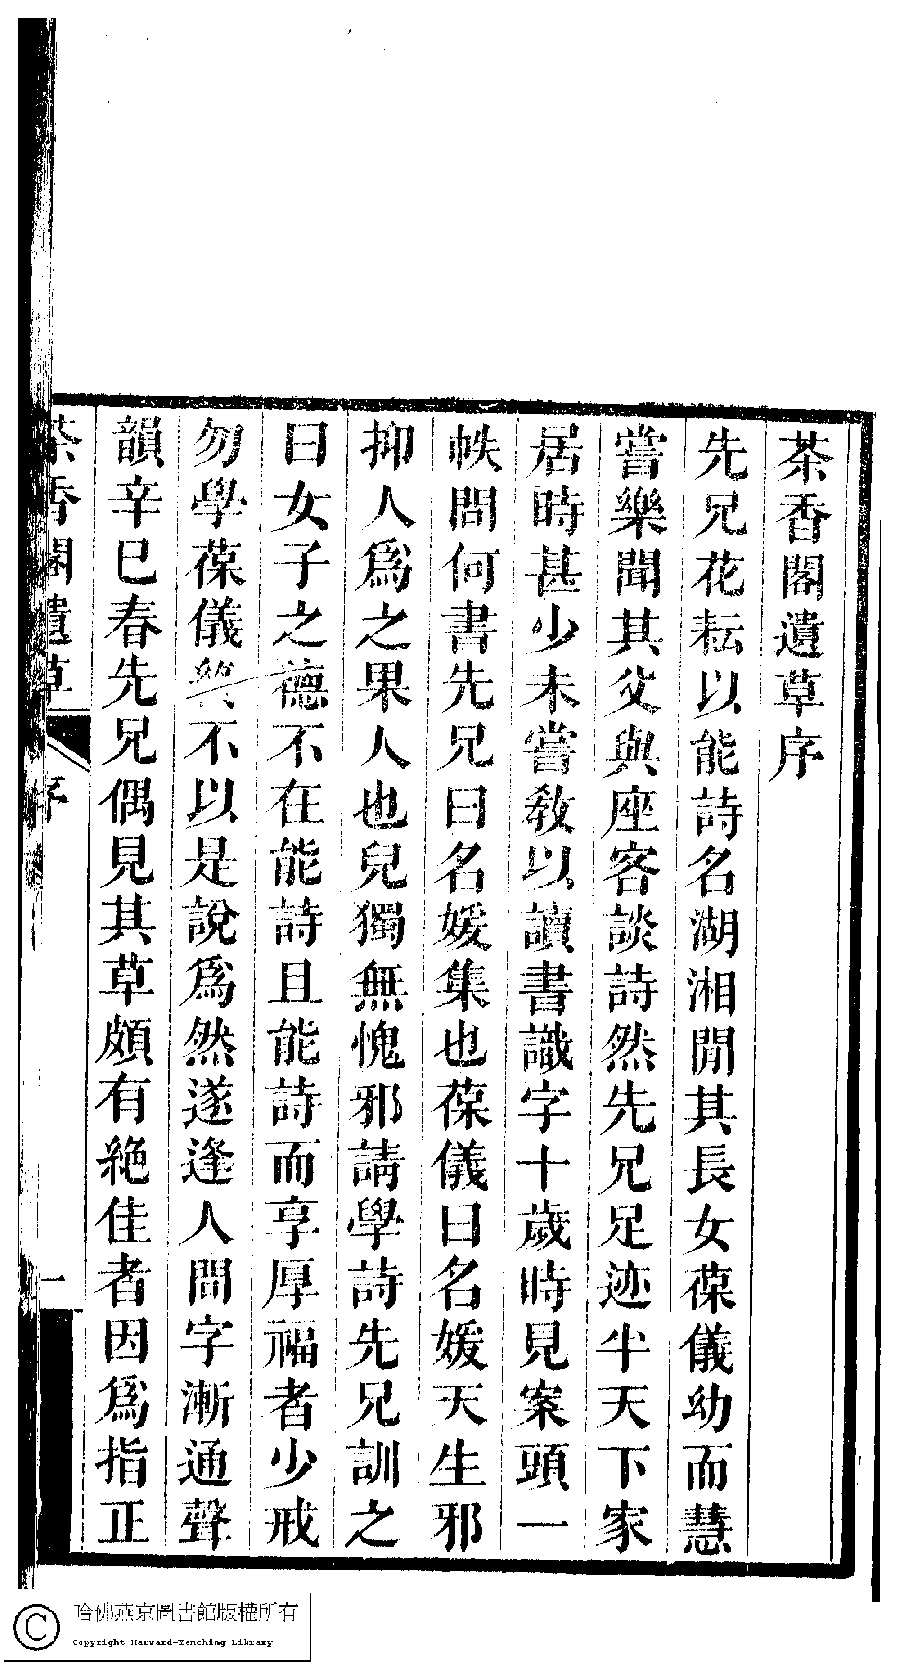 茶香閣遺草序
先兄花耘以能詩名湖湘閒其長女葆儀幼而慧
嘗樂聞其父與座客談詩然先兄足迹半天下家
居時甚少未嘗敎以讀書識字十歲時見案頭一
帙問何書先兄曰名媛集也葆儀曰名媛天生邪
抑人爲之果人也兒獨無愧邪請學詩先兄訓之
曰女子之德不在能詩且能詩而享厚福者少戒
勿學葆儀終不以是說爲然遂逢人問字漸通聲
韻辛巳春先兄偶見其草頗有絶佳者因爲指正
茶香閣遺草
序
一
哈佛燕京圖書館版權所有
Copyright Harvard-Yenching Library